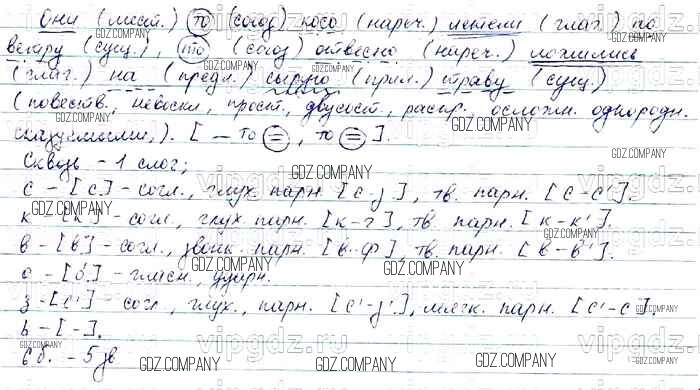 Они (мест.) то (союз) косо (нареч.) летели (глаг.) по
ветру (сущ.), то (союз) отвесно (нареч.) ложились
(глаг.) на (предл.) сырую (прил.) траву (сущ.)
(повеств., невоскл., прост., двусост., распр., осложн. однородн.
сказуемыми,). [ — то =, то = ].
Сквозь - 1 слог;
с - [с] - согл., глух. парн. [с-з], тв. парн. [с-с'].
к - [к] - согл., глух. парн. [к-г], тв. парн. [к-к'].
в - [в] - согл., звонк. парн. [в-ф], тв. парн. [в-в'].
о - [о́] - гласн., ударн.
з - [с'] - согл., глух., парн. [с'-з'], мягк. парн. [с'-с].
ь - [-].
6 б. - 5 зв
GDZ.COMPANY
vipgdz.ru